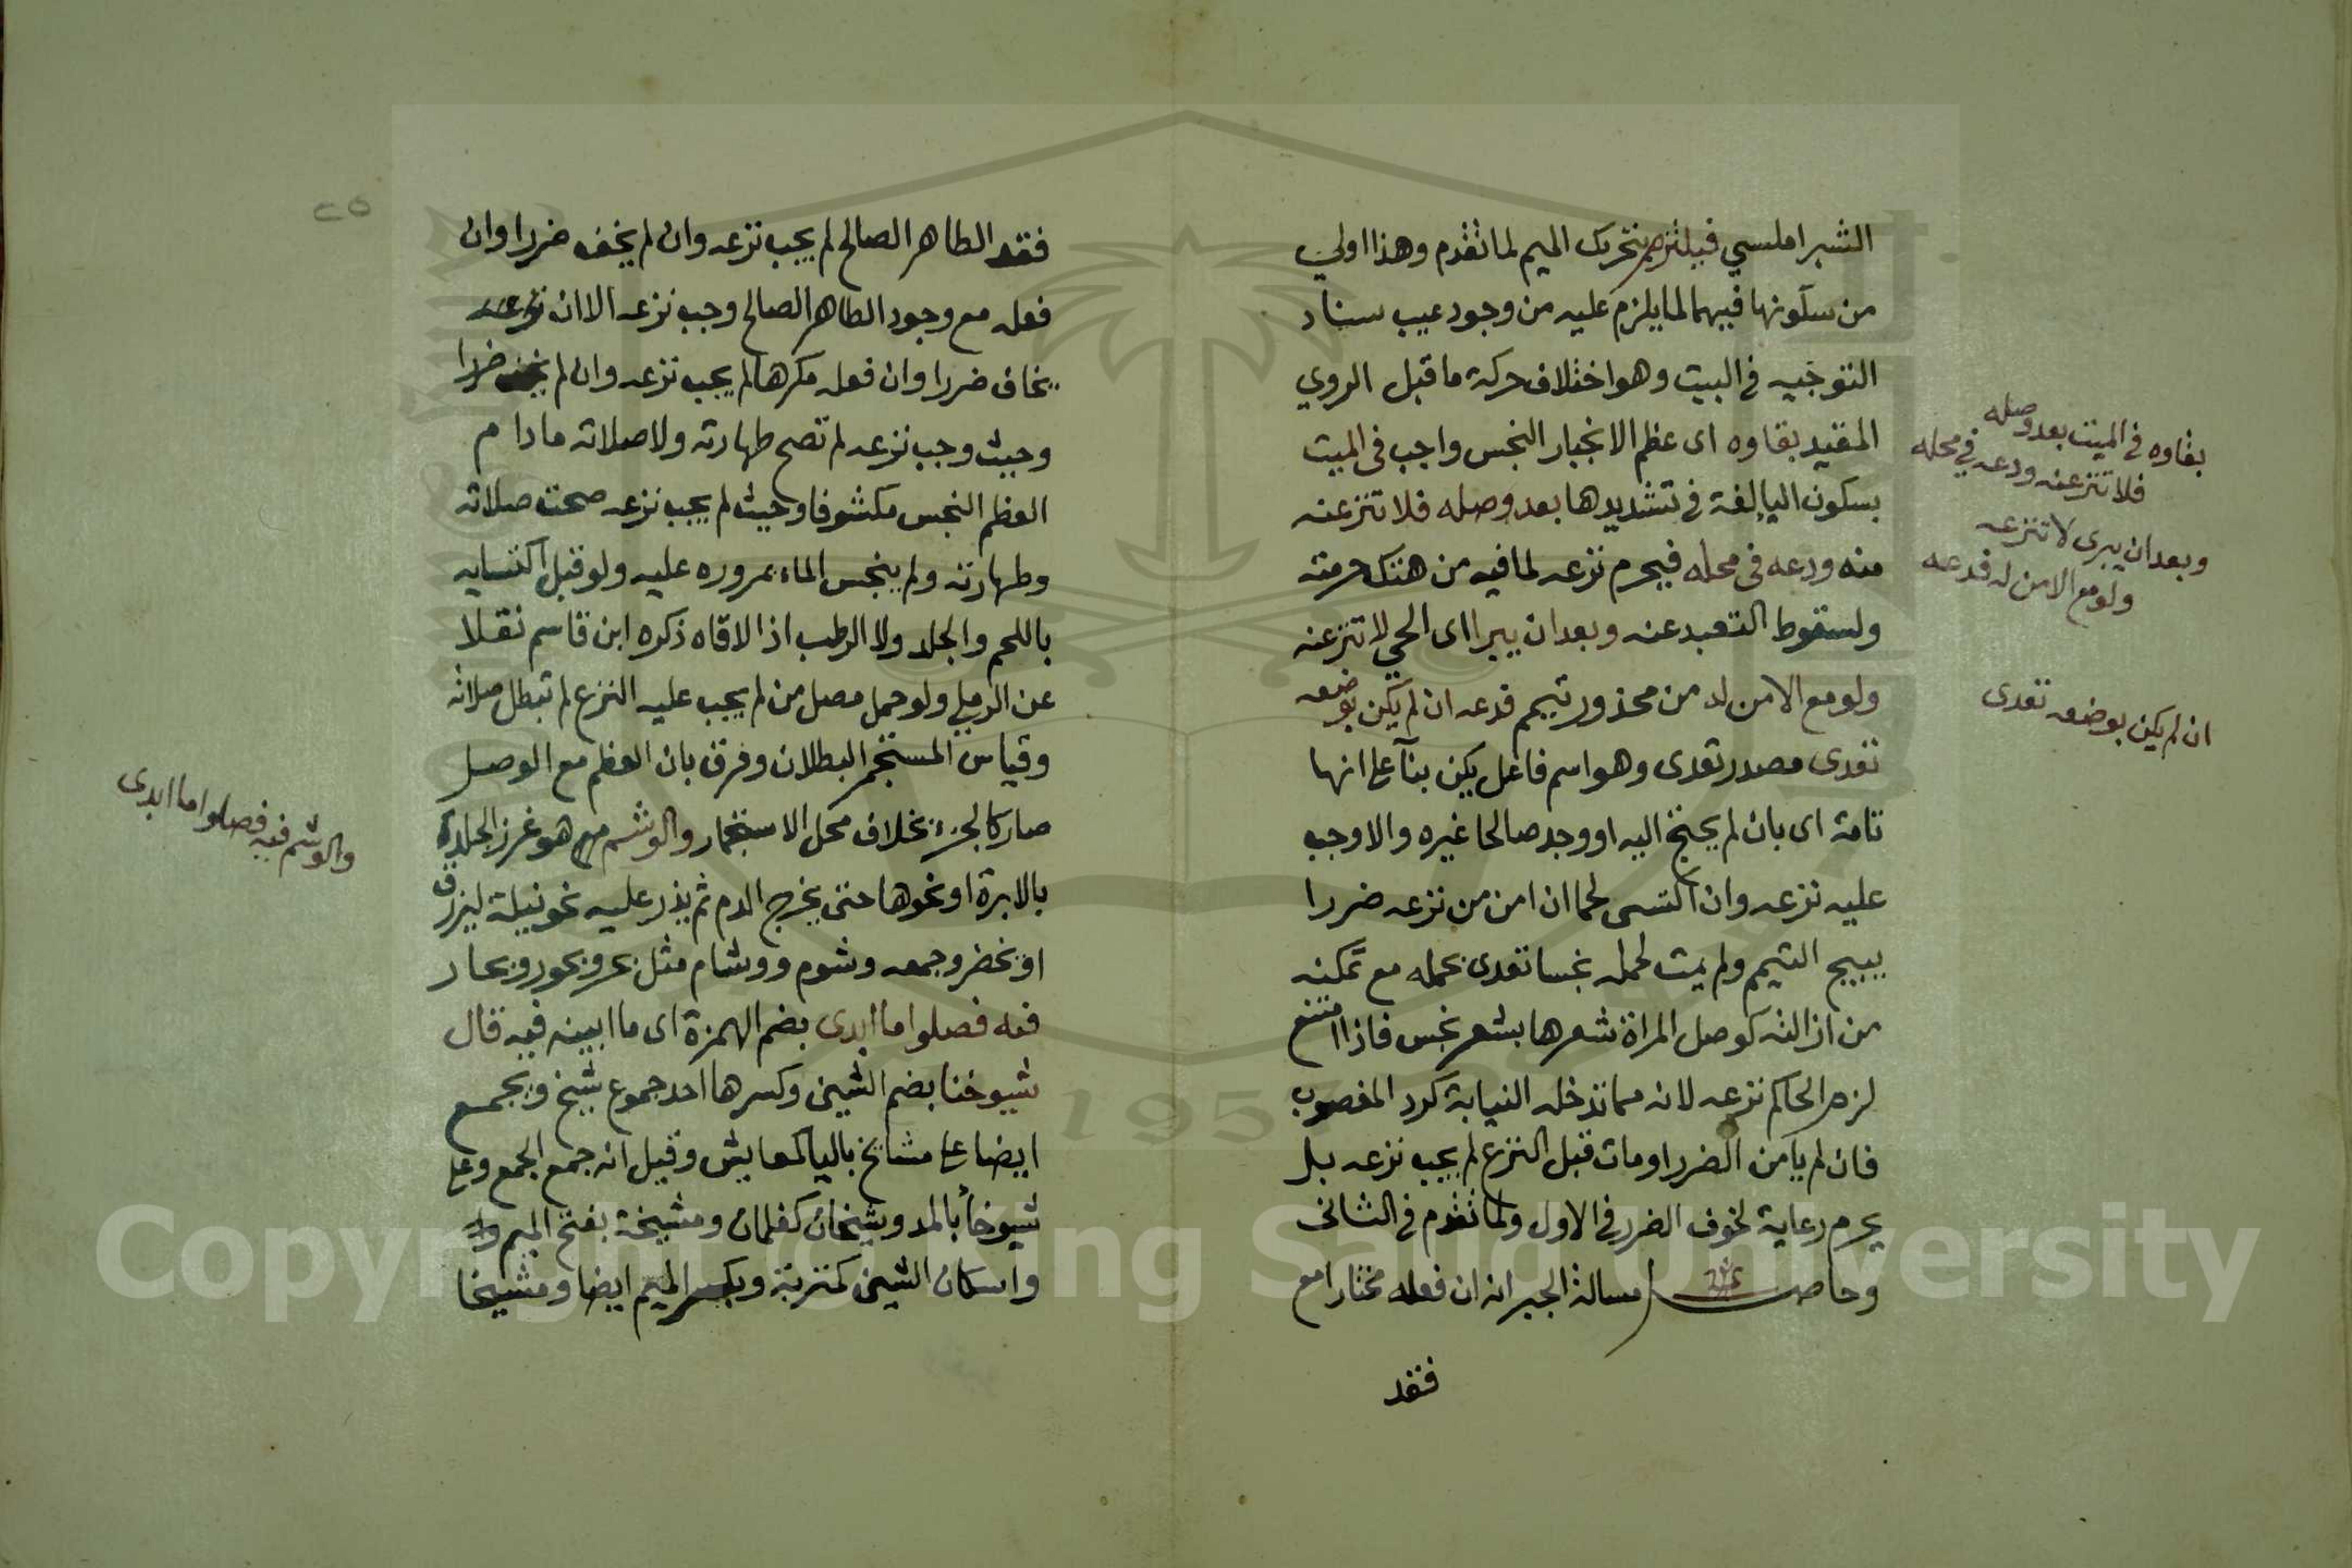 الشبراملسي فيلتزم بتحريك الميم لما تقدم وهذا اولي
من سكونها فيهما لما يلزم عليه من وجود عيب سناد
التوجيه في البيت وهو اختلاف حركة ما قبل الروي
المقيد بقاوه اى عظم الانجبار النجس واجب فى الميت
بسكون اليا لغة في تشديدها بعد وصله فلا تنزعنه
منه ودعه فى محله فيحرم نزعه لما فيه من هتك حرمته
ولسقوط التعبد عنه وبعد ان يبرا اى الحي لا تنزعنه
ولو مع الامن له من محذور تيمم فدعه ان لم يكن بوضعه
تعدى مصدر تعدى وهو اسم فاعل يكن بنآ على انها
تامة اى بان لم يحتج اليه او وجد صالحا غيره والا وجب
عليه نزعه وان اكتسى لحما ان امن من نزعه ضررا
يبيح التيمم ولم يمت لحمله نجسا تعدى بحمله مع تمكنه
من ازالته كوصل المراة شعرها بشعر نجس فاذا امتنع
لزم الحاكم نزعه لانه مما تدخله النيابة كرد المغصوب
فان لم يامن الضرر او مات قبل النزع لم يجب نزعه بل
يحرم رعاية لخوف الضرر في الاول ولما تقدم في الثانى
وحاصل مسالة الجبر انه ان فعله مختارا مع
فقد
بقاوه فى الميت بعد وصله
فلا تنزعنه ودعه في محله
وبعد ان يبرى لا تنزعه
ولو مع الامن له فدعه
ان لم يكن بوضعه تعدى
٢٥
فقد الطاهر الصالح لم يجب نزعه وان لم يخف ضررا وان
فعله مع وجود الطاهر الصالح وجب نزعه الا ان نزعه
يخاف ضررا وان فعله مكرها لم يجب نزعه وان لم يخف ضررا
وحيث وجب نزعه لم تصح طهارته ولا صلاته مادام
العظم النجس مكشوفا وحيث لم يجب نزعه صحت صلاته
وطهارته ولم ينجس الماء بمروره عليه ولو قبل اكتسايه
باللحم والجلد ولا الرطب اذا لاقاه ذكره ابن قاسم نقلا
عن الرملي ولو حمل مصل من لم يجب عليه النزع لم تبطل صلاته
وقياس المستجمر البطلان وفرق بان العظم مع الوصل
صار كالجزء بخلاف محل الاستجمار والوشم هو غرز الجلدة
بالابرة او نحوها حتى يخرج الدم ثم يذر عليه نحو نيلة ليزرق
او يخضر وجمعه وشوم ووشام مثل بحر وبحور وبحار
فعه فصلوا ما ابدى بضم الهمزة اى ما ابينه فيه قال
شيوخنا بضم الشين وكسرها احد جموع شيخ ويجمع
ايضا على مشايخ باليا كمعايش وقيل انه جمع الجمع وعلى
شيوخاً بالمد وشيخان كغلمان ومشيخة بفتح الميم
واسكان الشين كمتربة وبكسر الميم ايضا ومشيخا
والوشم فيه فصلوا ما ابدى
1957
Copyright © King Saud University